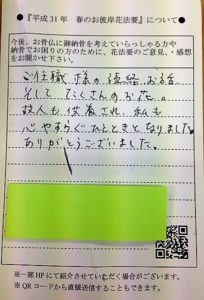 ●『平成31年　春のお彼岸花法要』について●
今後、お骨仏に御納骨を考えていらっしゃる方や
納骨でお困りの方のために、花法要のご意見、・感想
をお聞かせ下さい。
ご住職様の読経、お話
そして たくさんのお花。
故人も供養され、私も
心やすらぐひとときとなりました。
ありがとうございました。
※一部HPにて紹介させていただく場合がございます。
※QRコードから直接送信することもできます。